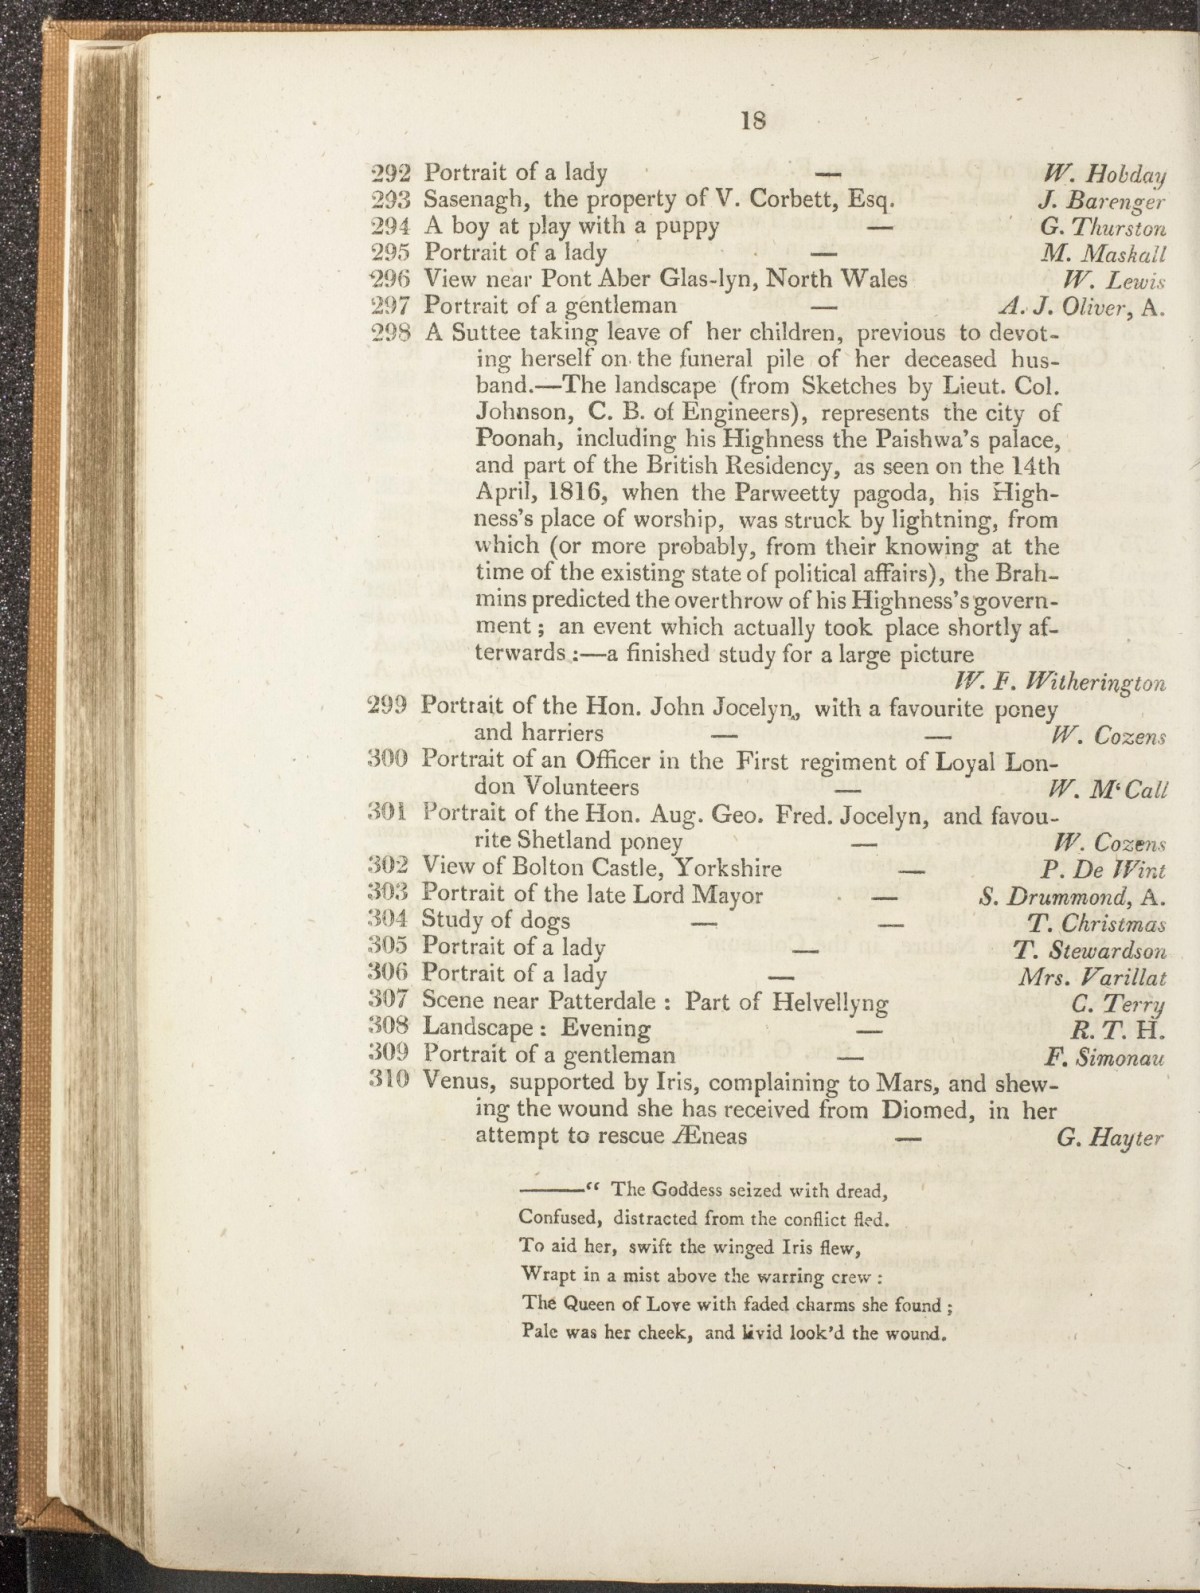 18
292 Portrait of a lady — W. Hobday
293 Sasenagh, the property of V. Corbett, Esq. J. Barenger
294 A boy at play with a puppy — G. Thurston
295 Portrait of a lady — M. Maskall
296 View near Pont Aber Glas-lyn, North Wales W. Lewis
297 Portrait of a gentleman — A. J. Oliver, A.
298 A Suttee taking leave of her children, previous to devot-
ing herself on the funeral pile of her deceased hus-
band.—The landscape (from Sketches by Lieut. Col.
Johnson, C. B. of Engineers), represents the city of
Poonah, including his Highness the Paishwa's palace,
and part of the British Residency, as seen on the 14th
April, 1816, when the Parweetty pagoda, his High-
ness's place of worship, was struck by lightning, from
which (or more probably, from their knowing at the
time of the existing state of political affairs), the Brah-
mins predicted the overthrow of his Highness's govern-
ment ; an event which actually took place shortly af-
terwards :—a finished study for a large picture
W. F. Witherington
299 Portrait of the Hon. John Jocelyn, with a favourite poney
and harriers — — W. Cozens
300 Portrait of an Officer in the First regiment of Loyal Lon-
don Volunteers — W. M‘Call
301 Portrait of the Hon. Aug. Geo. Fred. Jocelyn, and favou-
rite Shetland poney — W. Cozens
302 View of Bolton Castle, Yorkshire — P. De Wint
303 Portrait of the late Lord Mayor — S. Drummond, A.
304 Study of dogs — — T. Christmas
305 Portrait of a lady — T. Stewardson
306 Portrait of a lady — Mrs. Varillat
307 Scene near Patterdale : Part of Helvellyng C. Terry
308 Landscape : Evening — R. T. H.
309 Portrait of a gentleman — F. Simonau
310 Venus, supported by Iris, complaining to Mars, and shew-
ing the wound she has received from Diomed, in her
attempt to rescue Æneas — G. Hayter
———“ The Goddess seized with dread,
Confused, distracted from the conflict fled.
To aid her, swift the winged Iris flew,
Wrapt in a mist above the warring crew :
The Queen of Love with faded charms she found ;
Pale was her cheek, and livid look'd the wound.